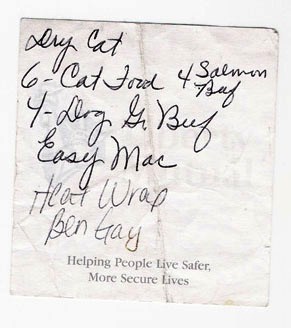 Dry Cat
6- Cat Food 4 Salmon
Beef
4- Dog Gr Beef
Easy Mac
Heat Wrap
Ben Gay
Helping People Live Safer,
More Secure Lives